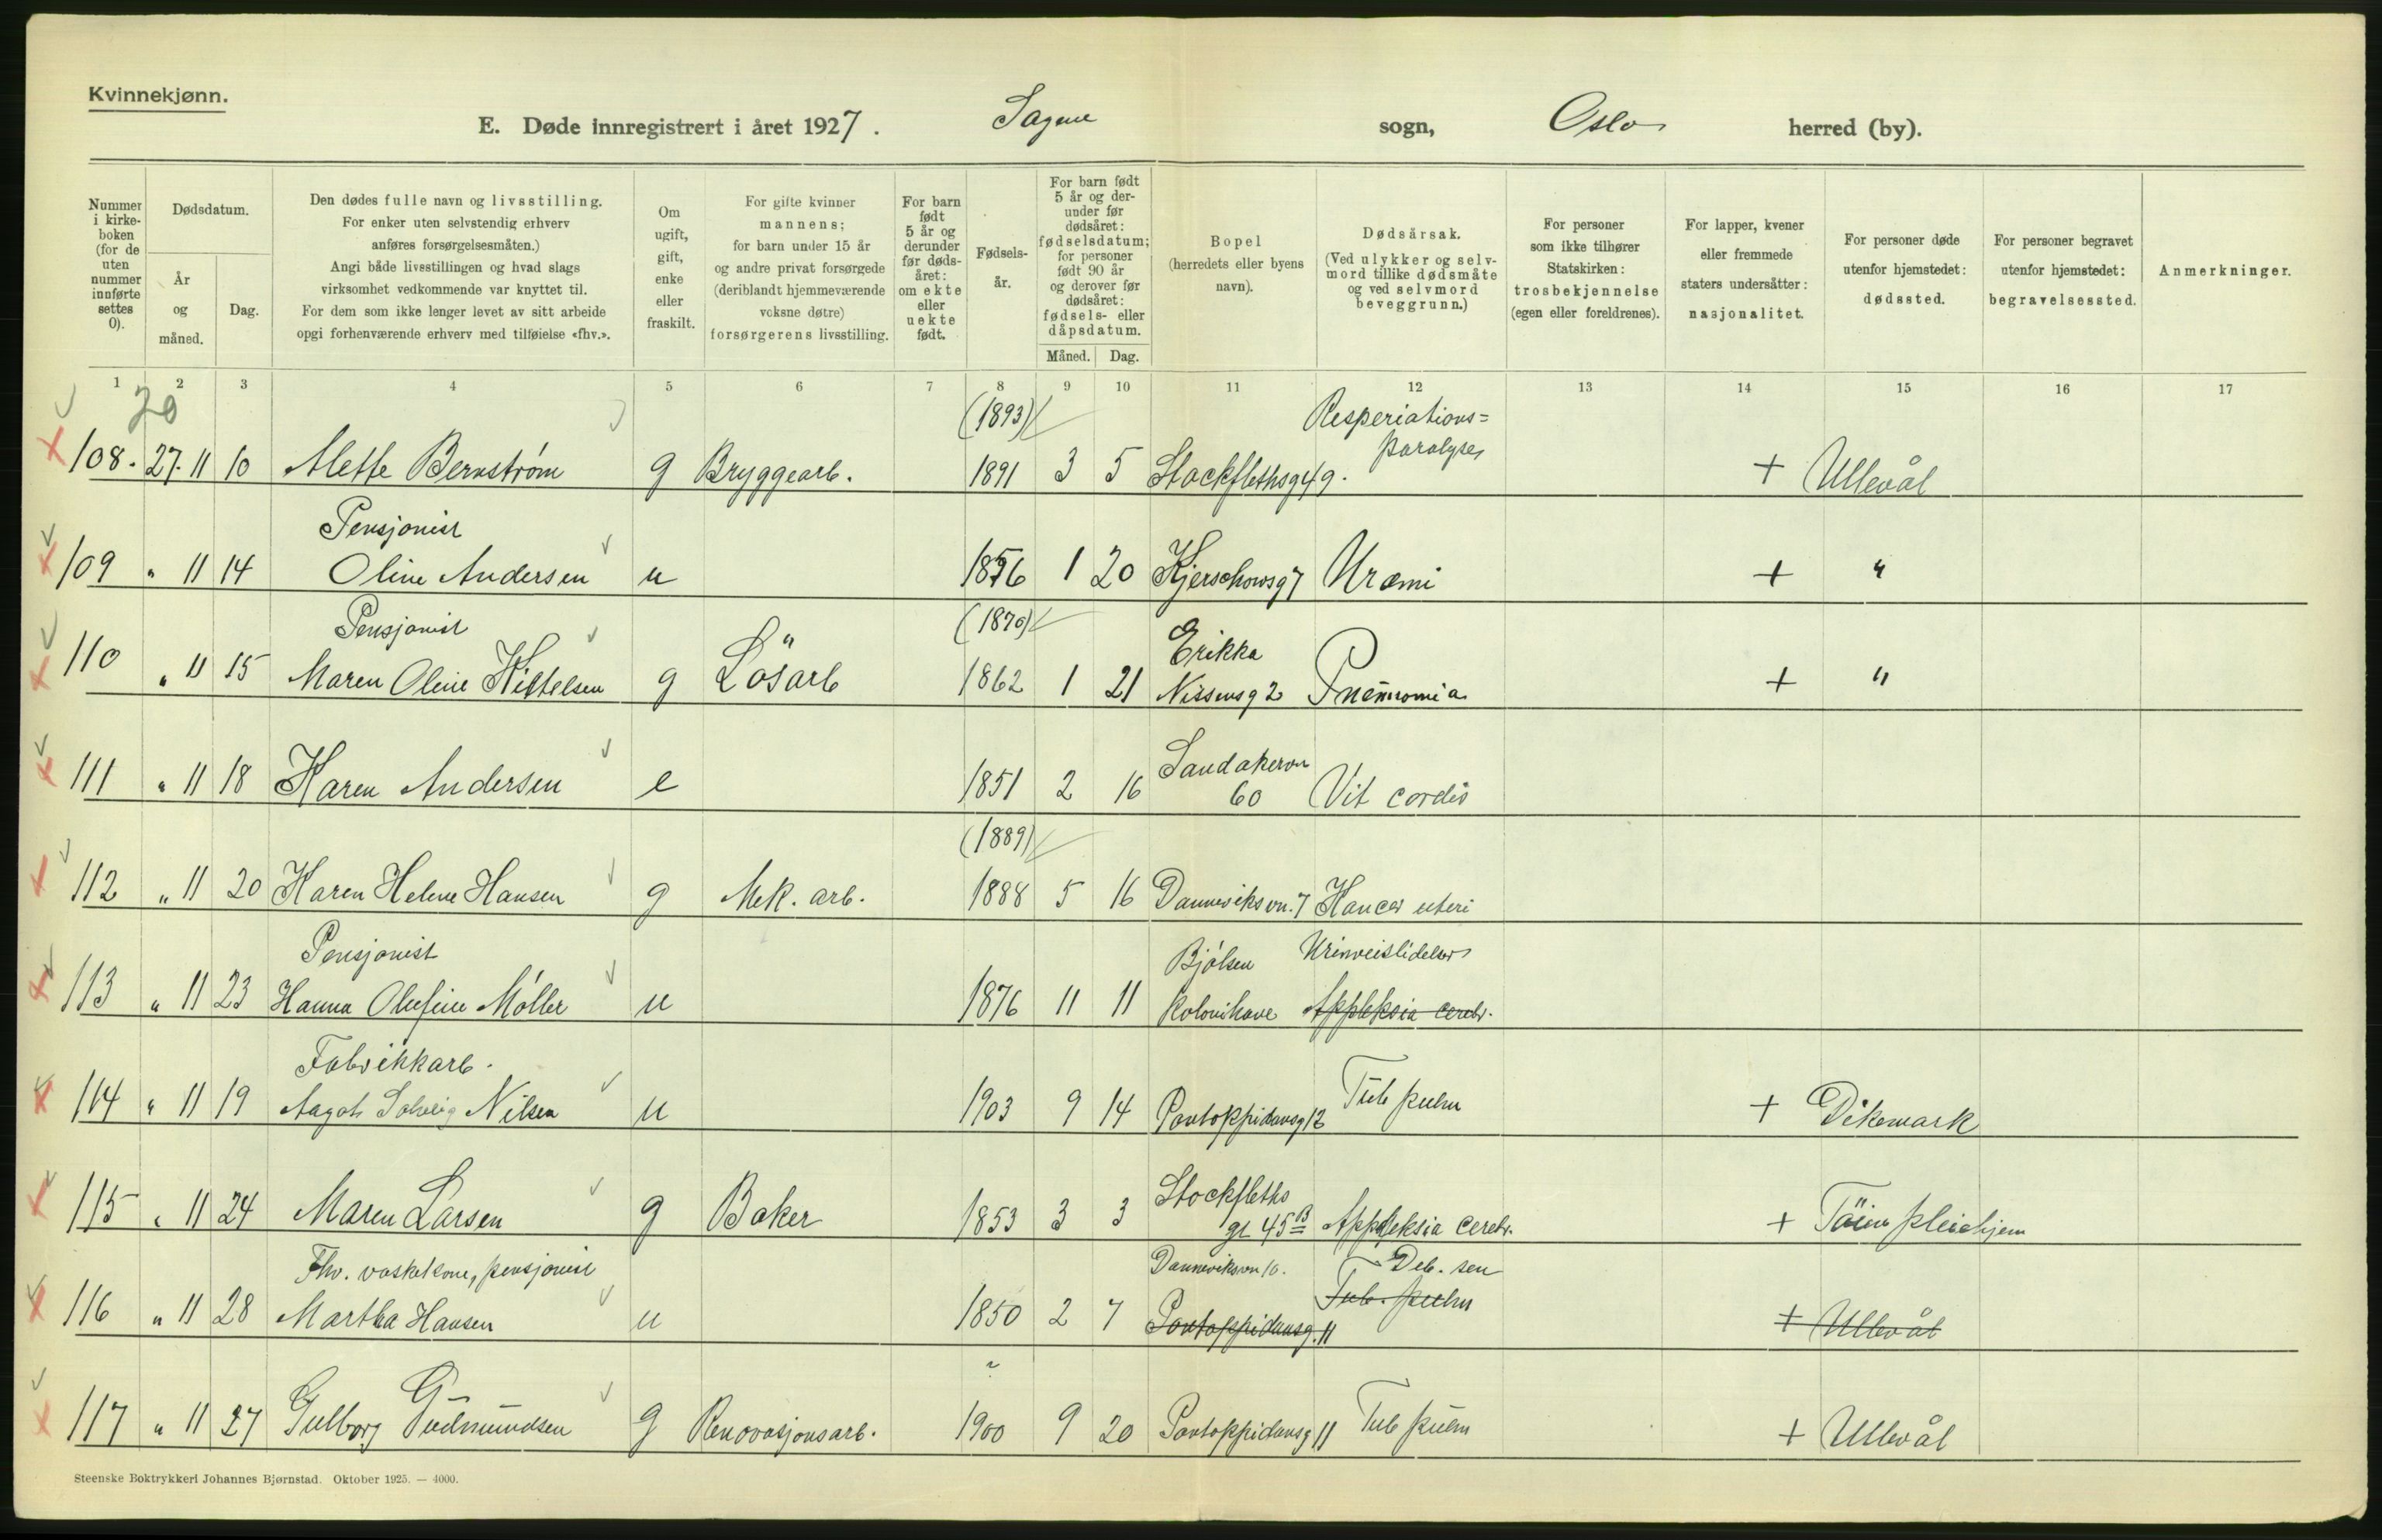 Kvinnekjønn.
E. Døde innregistrert i året 1927. Sagene sogn, Oslo herred (by).
Nummer i kirke-boken (for de uten nummer innførte settes 0).
Dødsdatum.
År og måned.
Dag.
Den dødes fulle navn og livsstilling.
For enker uten selvstendig erhverv
anføres forsørgelsesmåten.)
Angi både livsstillingen og hvad slags
virksomhet vedkommende var knyttet til.
For dem som ikke lenger levet av sitt arbeide
opgi forhenværende erhverv med tilføielse «fhv.».
Om ugift, gift, enke eller fraskilt.
For gifte kvinner
mannens;
for barn under 15 år
og andre privat forsørgede
(deriblandt hjemmeværende
voksne døtre)
forsørgerens livsstilling.
For barn født 5 år og derunder før døds-året: om ekte eller uekte født.
Fødsels-år.
For barn født 5 år og der-under før dødsåret: fødselsdatum; for personer født 90 år og derover før dødsåret: fødsels- eller dåpsdatum.
Måned. Dag.
Bopel
(herredets eller byens
navn).
Dødsårsak.
(Ved ulykker og selv-
mord tillike dødsmåte
og ved selvmord
beveggrunn.)
For personer
som ikke tilhører
Statskirken:
trosbekjennelse
(egen eller foreldrenes).
For lapper, kvener
eller fremmede
staters undersåtter:
nasjonalitet.
For personer døde
utenfor hjemstedet:
dødssted.
For personer begravet
utenfor hjemstedet:
begravelsessted.
Anmerkninger.
1 2 3 4 5 6 7 8 9 10 11 12 13 14 15 16 17
20 (1893) Resperiations=
paralyse
108. 27. 11 10 Alette Bernstrøm g Bryggearb. 1891 3 5 Stockflethsg 49. + Ullevål
Pensjonist
109 " 11 14 Oline Andersen u 1856 1 20 Kjerschowsg 7 Uræmi + "
Pensjonist (1870) Erikka
110 " 11 15 Maren Oline Kittelsen g Løsarb 1862 1 21 Nissensg 2 Pneumonia + "
Sandakervn
111 " 11 18 Karen Andersen e 1851 2 16 60 Vit cordis
(1889)
112 " 11 20 Karen Helene Hansen g Mek. arb. 1888 5 16 Danneviksvn. 7 Kancer uteri
Pensjonist Bjølsen Urinveislidelser
113 " 11 23 Hanna Olufine Møller u 1876 11 11 Kolonihave Appleksia cerebr.
Fabrikkarb.
114 " 11 19 Aagot Solveig Nilsen u 1903 9 14 Pontoppidansg 12 Tub pulm + Dikemark
Stockfleths
115 " 11 24 Maren Larsen g Baker 1853 3 3 gt 45 B Appoleksia cerebr. + Tøien pleiehjem
Fhv. vaskekone, pensjonist Danneviksvn 10. Deb. sen
116 " 11 28 Martha Hansen u 1850 2 7 Pontoppidansg. 11 Tub. pulm + Ullevål
?
117 " 11 27 Gulborg Gudmundsen g Renovasjonsarb. 1900 9 20 Pontoppidansg 11 Tub pulm + Ullevål
Steenske Boktrykkeri Johannes Bjørnstad. Oktober 1925. — 4000.